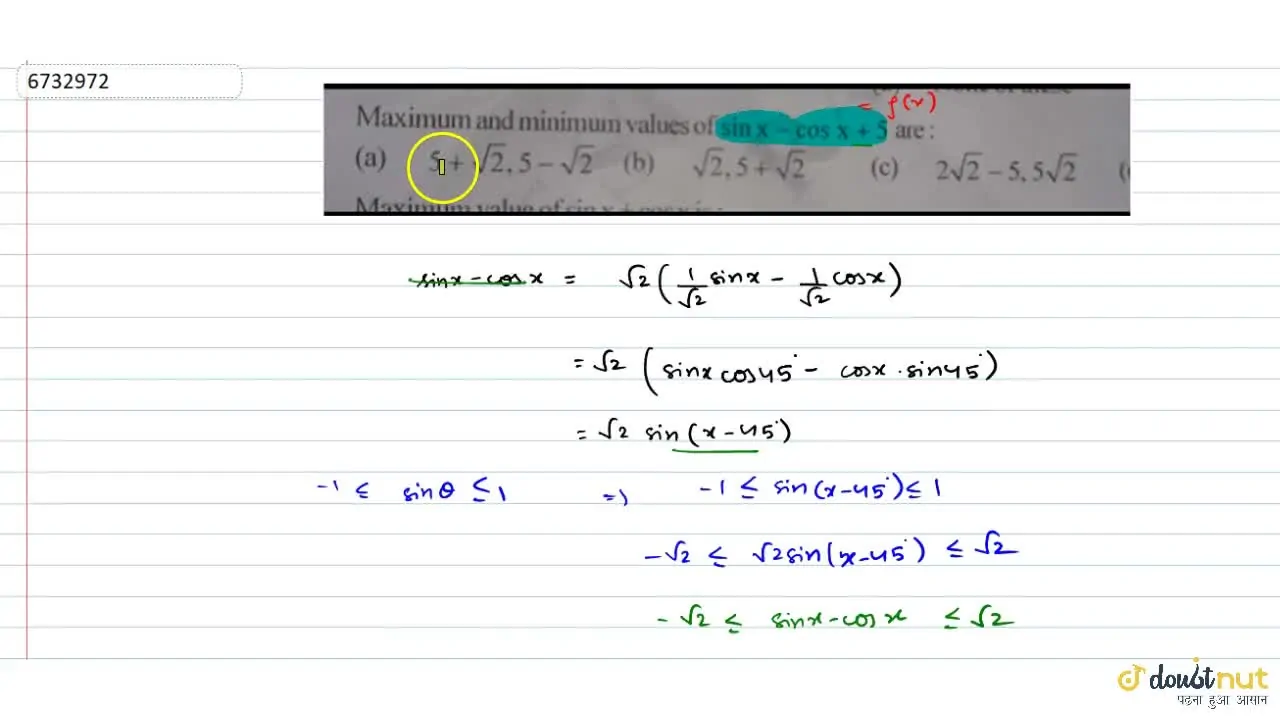 6732972
= f(x)
Maximum and minimum values of sin x − cos x + 5 are :
(a) 5 + √2, 5 − √2 (b) √2, 5 + √2 (c) 2√2 − 5, 5√2
Maximum value of sin x + cos x is :
sinx - cosx = √2 (1/√2 sinx - 1/√2 cosx)
= √2 (sinx cos45° - cosx · sin45°)
= √2 sin(x-45°)
-1 ≤ sinθ ≤ 1 ⇒ -1 ≤ sin(x-45°) ≤ 1
-√2 ≤ √2 sin(x-45°) ≤ √2
-√2 ≤ sinx-cosx ≤ √2
doubtnut
पढ़ना हुआ आसान